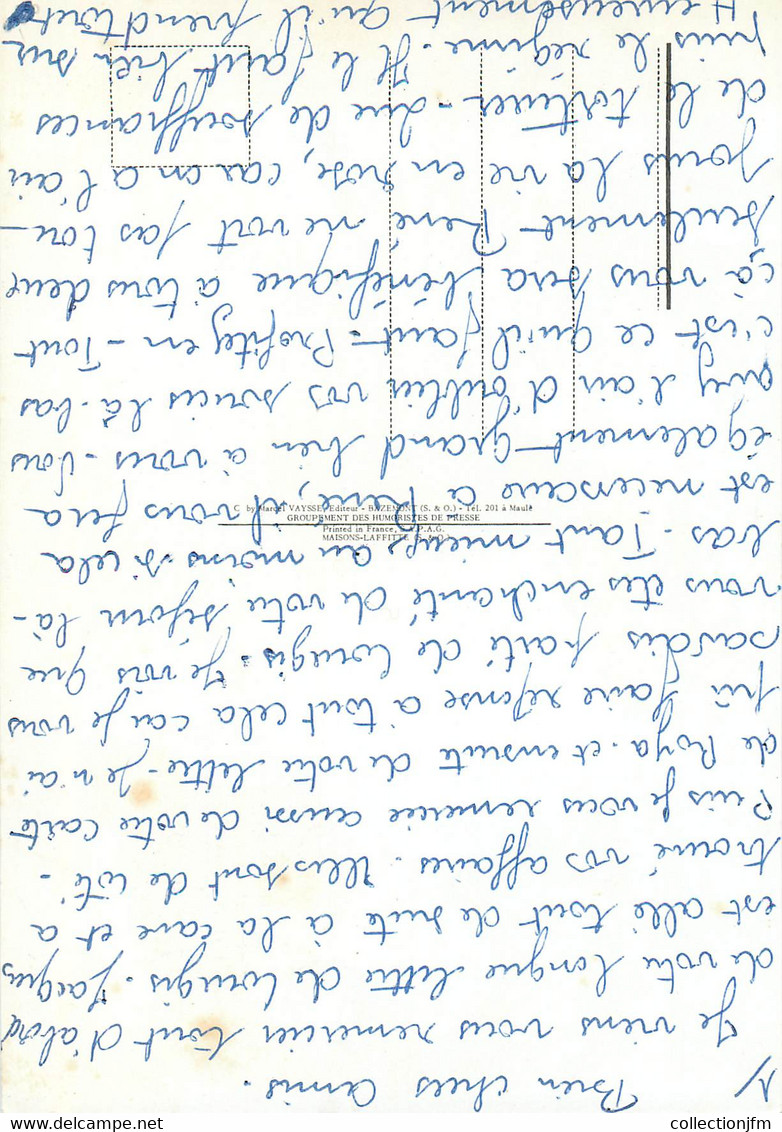 1/ Bien chers amis.
Je viens vous remercier tout d'abord
de votre longue lettre de Jacques
est allé tout de suite à la cave et a
trouvé vos affaires. Elles sont de côté -
Puis je vous remercie aussi de votre carte
de Roya. et ensuite de votre lettre - Je n'ai
pû faire réponse à tout cela car je vous
savais parti de Je vois que
vous êtes enchanté de votre séjour là-
bas - Tant mieux, au moins si cela
est necessaire à René, il vous fera
également grand bien à vous - Vous
avez l'air d'oublier vos soucis là-bas
c'est ce qu'il faut - Profitez en - Tout
çà vous sera bénéfique à tous deux
seulement René ne voit pas tou-
jours la vie en rose, car on a l'air
de le torturer - que de souffrances
puis le régime. Il le faut bien sur
Heureusement qu'il prend tout
by Marcel VAYSSE, Editeur - BAZEMONT (S. & O.) - Tél. 201 à Maule
GROUPEMENT DES HUMORISTES DE PRESSE
Printed in France, P.A.G.
MAISONS-LAFFITTE (S. & O.)
collectionjfm